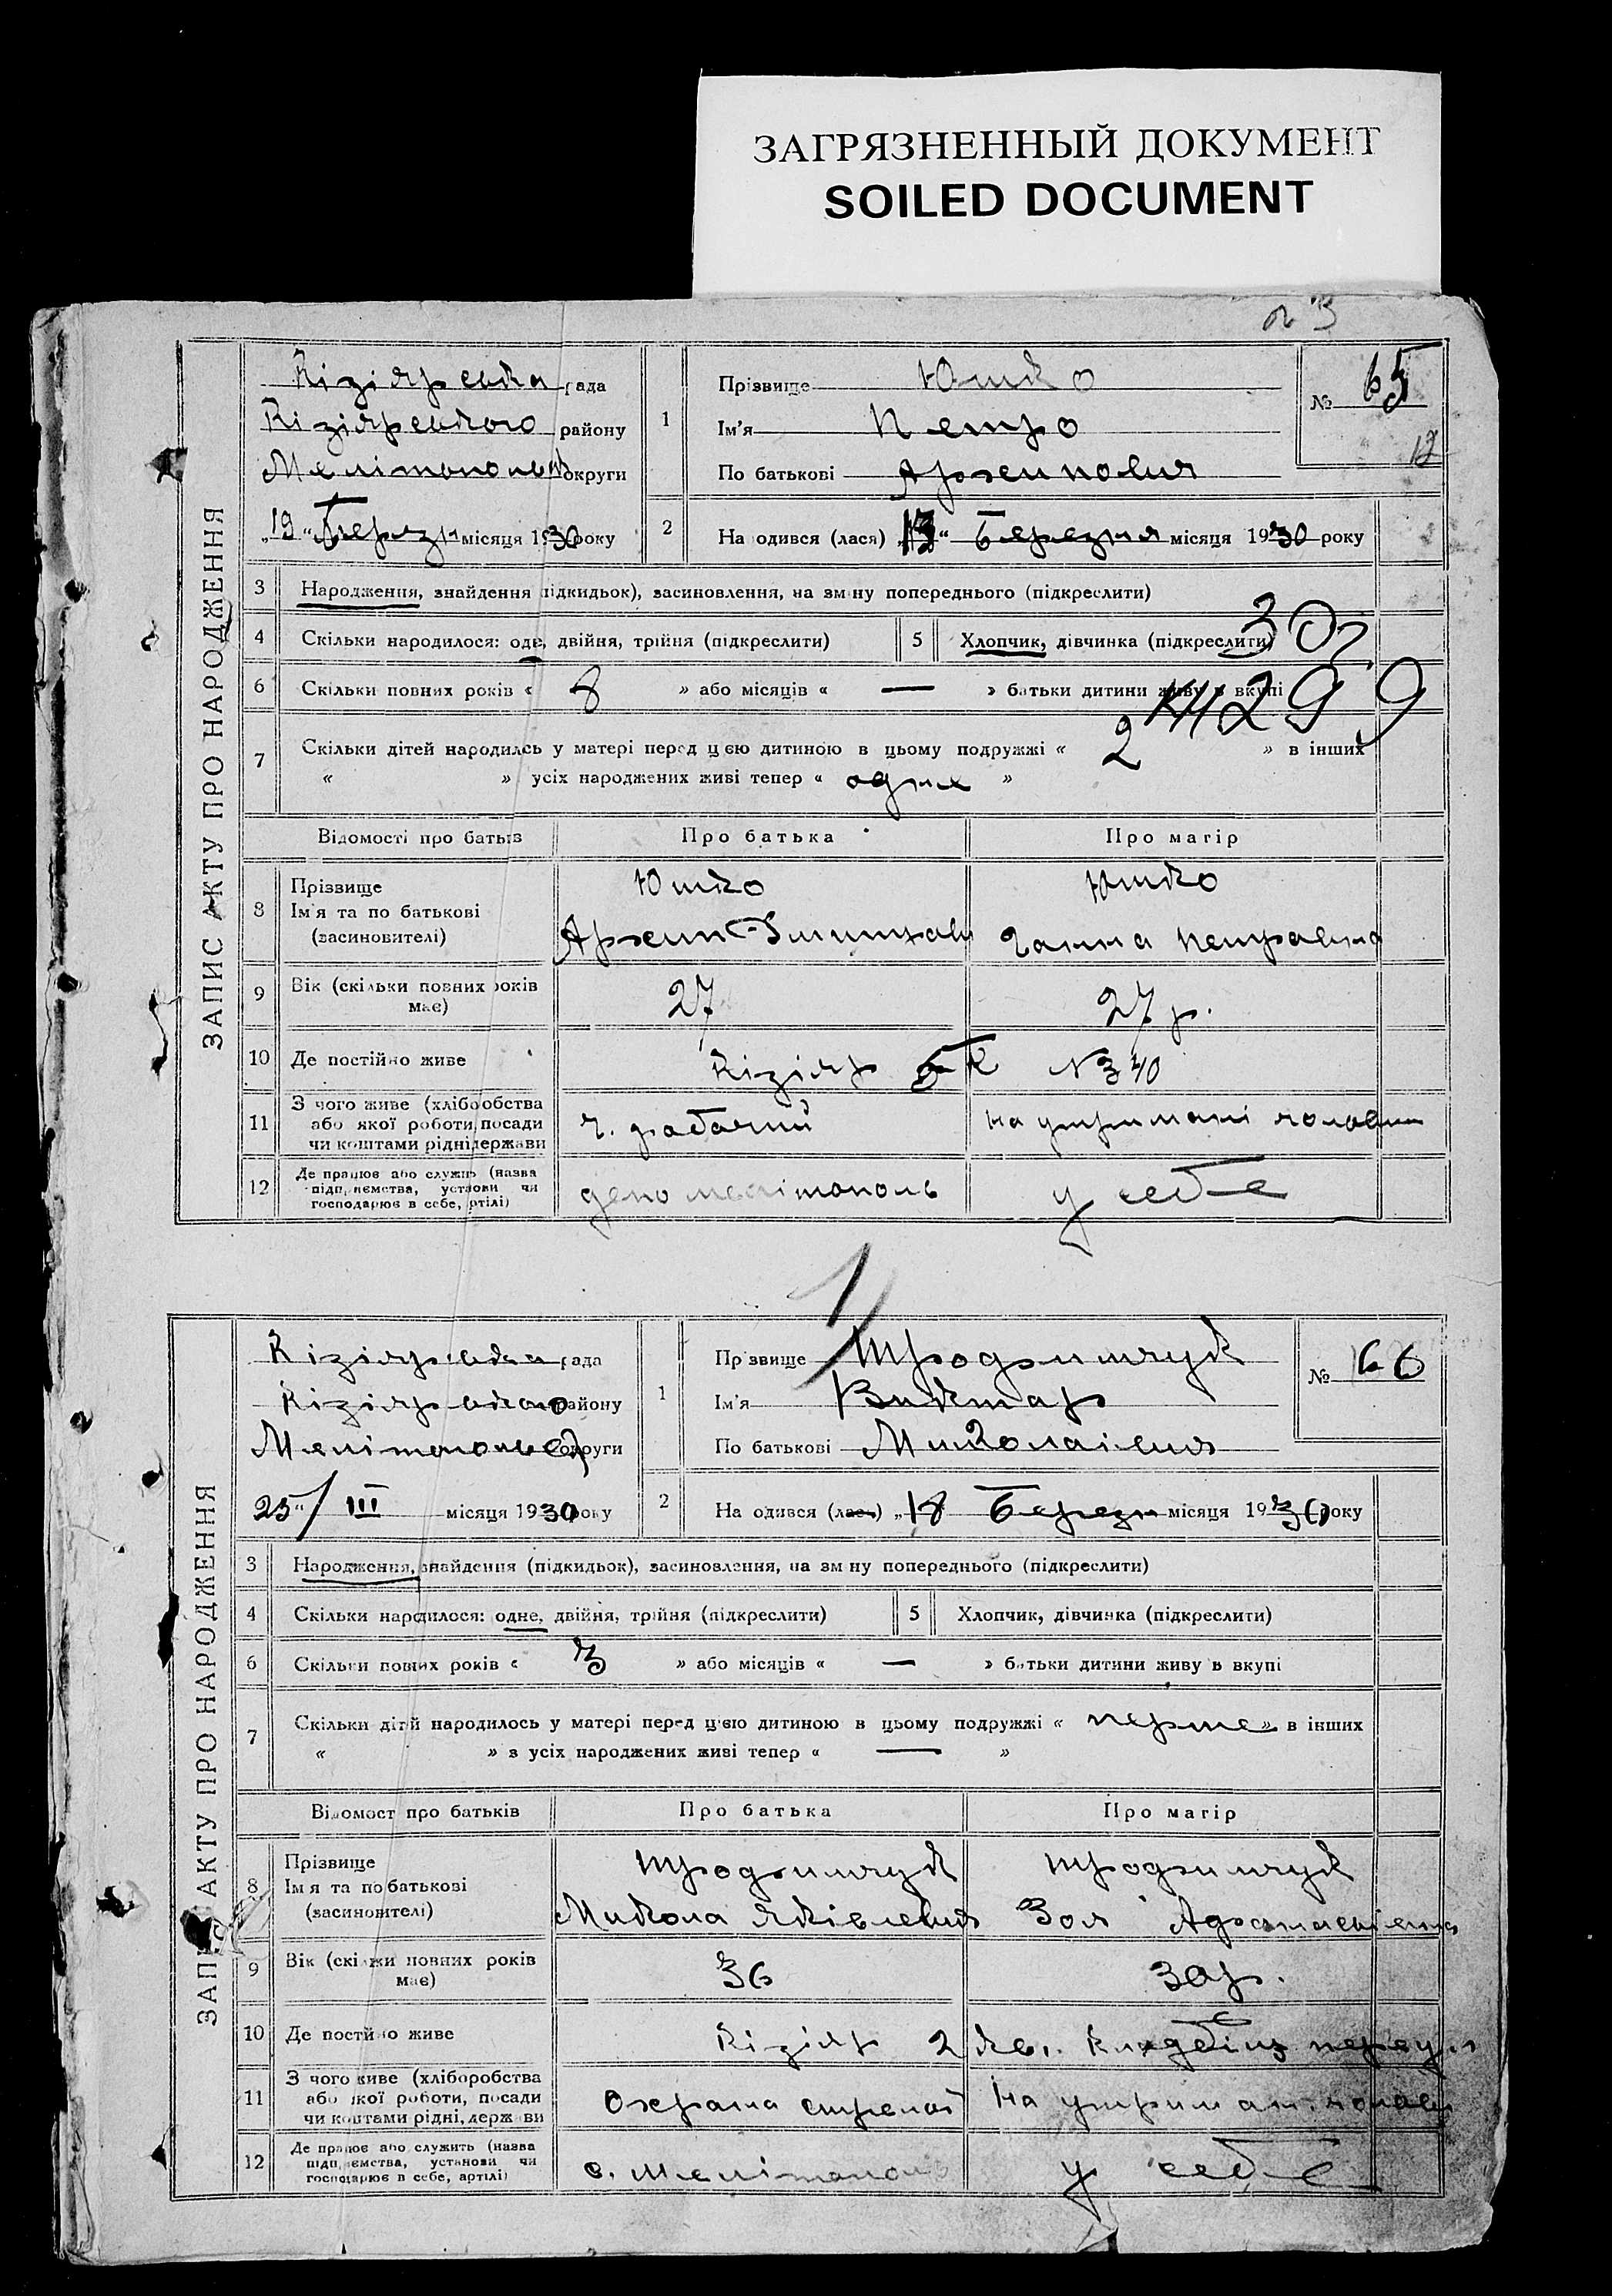 ЗАГРЯЗНЕННЫЙ ДОКУМЕНТ
SOILED DOCUMENT
ЗАПИС АКТУ ПРО НАРОДЖЕННЯ
Кізіярська рада
Кізіярського району
Мелітопольськ округи
„19“ Березня місяця 1930 року
1
Прізвище Юшко
Ім'я Петро
По батькові Архипович
№ 65
2
На одився (лася) „13“ Березня місяця 1930 року
3 Народження, знайдення підкидьок), засиновлення, на зм ну попереднього (підкреслити)
4 Скільки народилося: одне, двійня, трійня (підкреслити)
5 Хлопчик, дівчинка (підкреслити)
6 Скільки повних років « 8 » або місяців « — » батьки дитини живу в вкупі
7 Скільки дітей народилсь у матері перед цією дитиною в цьому подружжі « 2 » в інших
« » усіх народжених живі тепер « одне »
Відомості про батьків
Про батька
Про матір
8 Прізвище
Ім'я та по батькові
(засиновителі)
Юшко
Архип
Юшко
Ганна Петравна
9 Вік (скільки повних років
має)
27
27 р.
10 Де постійно живе
Кізіяр №340
11 З чого живе (хліборобства
або якої роботи, посади
чи коштами рідні держави
ч. рабочий
на утримані чоловіка
12 Де працює або служить (назва
підприємства, установи чи
господарює в себе, артілі)
депо мелітополь
у себе
ЗАПИС АКТУ ПРО НАРОДЖЕННЯ
Кізіярська рада
Кізіярського району
Мелітопольської округи
25/III місяця 1930 року
1
Пр звище Трофимчук
Ім'я Виктар
По батькові Миколаіевич
№ 66
2
На одився (лася) „18 Березня місяця 1930 року
3 Народження, знайдення (підкидьок), засиновлення, на зм ну попереднього (підкреслити)
4 Скільки народилося: одне, двійня, трійня (підкреслити)
5 Хлопчик, дівчинка (підкреслити)
6 Скільки повних років « 3 » або місяців « — » батьки дитини живу в вкупі
7 Скільки дітей народилось у матері перед цією дитиною в цьому подружжі « перше » в інших
« » з усіх народжених живі тепер « — »
Відомост про батьків
Про батька
Про матір
8 Прізвище
Ім'я та по батькові
(засиновителі)
Трофимчук
Микола Яківлевич
Трофимчук
Зоя
9 Вік (скільки повних років
має)
36
30 р.
10 Де постійно живе
Кізіяр 2 кв.
11 З чого живе (хліборобства
або якої роботи, посади
чи коштами рідні, держави
Охрана
На утриман. чоловік
12 Де працює або служить (назва
підприємства, установи чи
господарює в себе, артілі)
с. Мелітополь
у себе